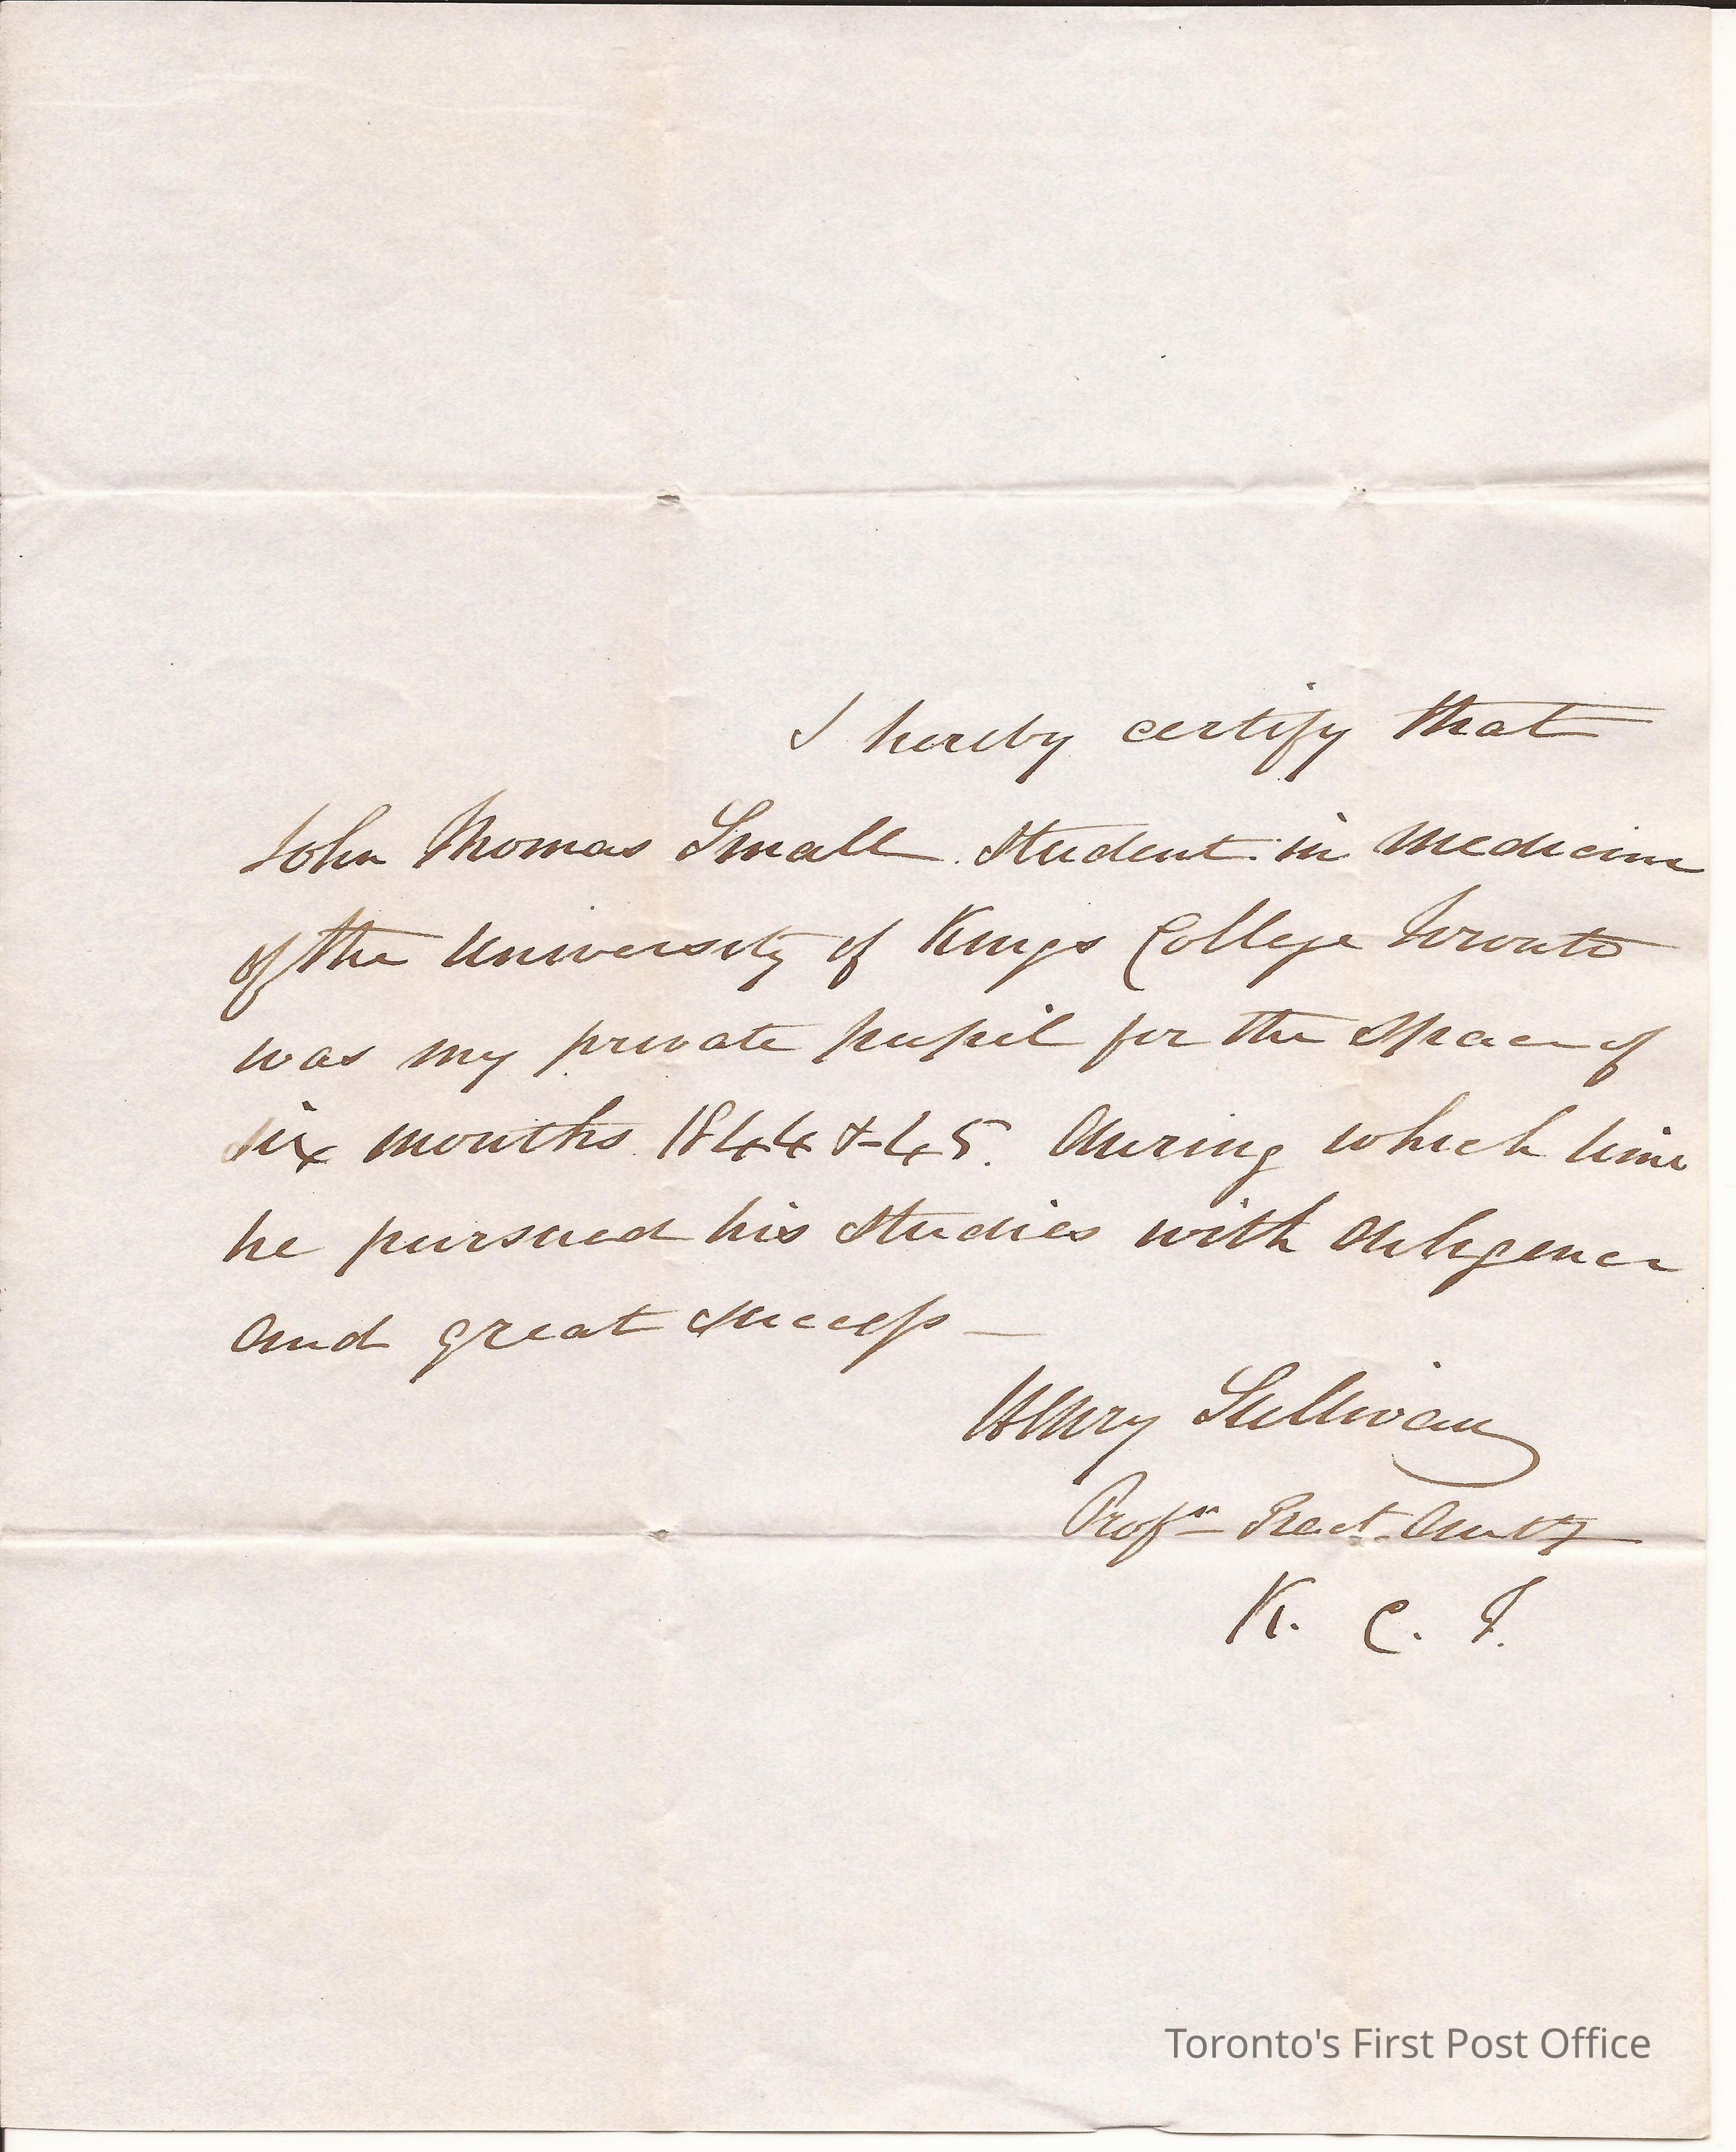 I hereby certify that
John Thomas Small Student in Medicine
of the University of Kings College Toronto
was my private pupil for the space of
six months 1844 & 45. During which time
he pursued his studies with diligence
and great success —
Henry Sullivan
Profr Pract. Anaty
K. C. T.
Toronto's First Post Office